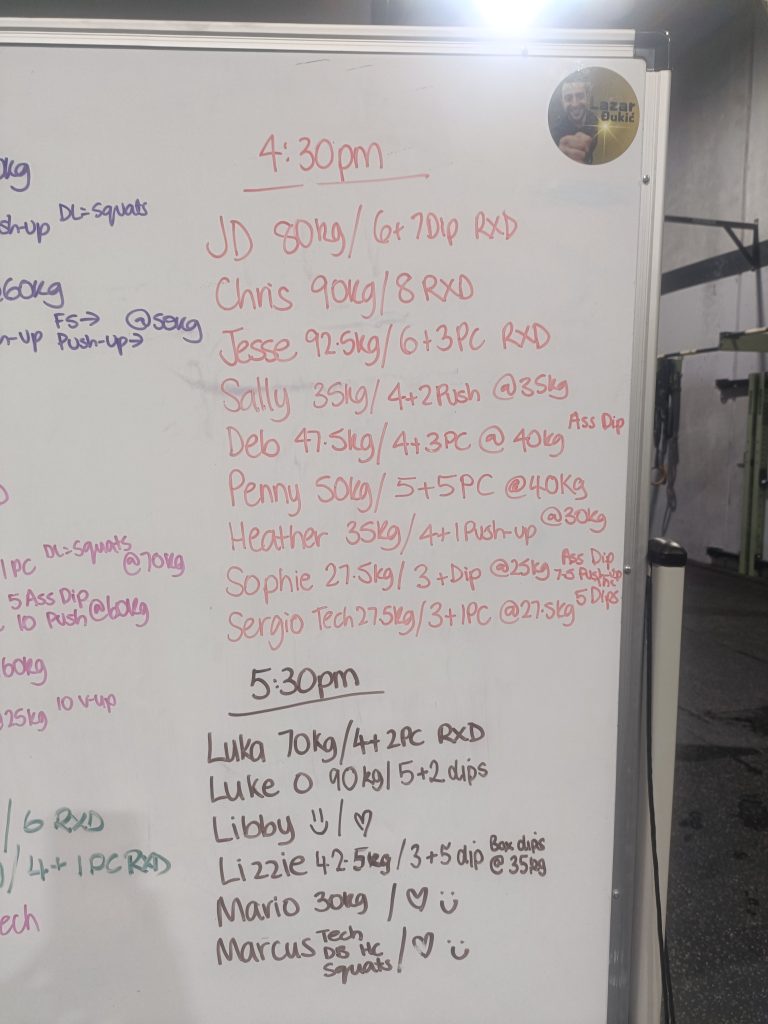 Lazar
Đukić
4:30pm
JD 80kg/ 6+7Dip RXD
Chris 90kg/8 RXD
Jesse 92.5kg/6+3PC RXD
Sally 35kg/ 4+2Push @35kg
Deb 47.5kg/4+3PC @ 40kg Ass Dip
Penny 50kg/ 5+5PC @40kg
Heather 35kg/4+1Push-up @30kg
Sophie 27.5kg/ 3+Dip @25kg Ass Dip
7.5 Push-up
Inc
Sergio Tech 27.5kg/3+1PC @27.5kg 5 Dips
5:30pm
Luka 70kg/4+2PC RXD
Luke O 90kg/5+2 dips
Libby ツ/♡
Lizzie 42.5kg/3+5 dip Box dips
@ 35kg
Mario 30kg /♡ ツ
Marcus Tech
DB HC
Squats /♡ ツ
0kg
sh-up DL=squats
60kg
FS→ @50kg
Push-up→
1PC DL=squats
@70kg
5 Ass Dip
10 Push @60kg
60kg
25kg 10 V-up
/ 6 RXD
/4+1PC RXD
ech